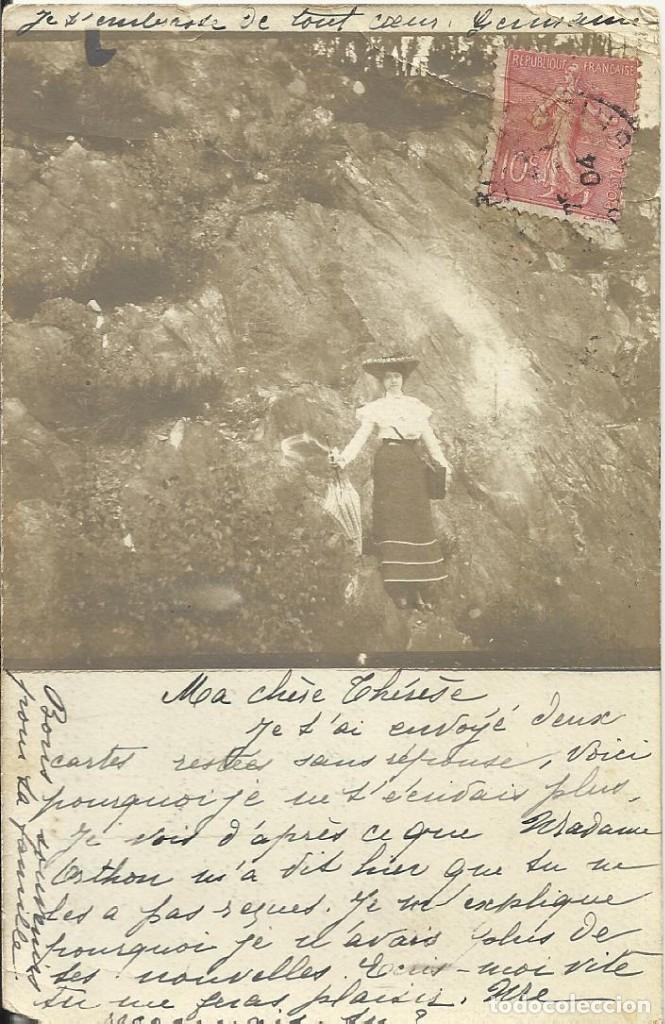 Je t'embrasse de tout cœur. Germaine
REPUBLIQUE FRANÇAISE
10c
POSTES
04
Ma chère Thérèse
Je t'ai envoyé deux
cartes restées sans réponse, voici
pourquoi je ne t'écrivais plus.
Je vois d'après ce que Madame
Orthon m'a dit hier que tu ne
les a pas reçues. Je m'explique
pourquoi je n'avais plus de
tes nouvelles. Ecris-moi vite
tu me feras plaisir. Me
reconnais-tu?
Bons souvenirs
pour ta famille.
todocoleccion